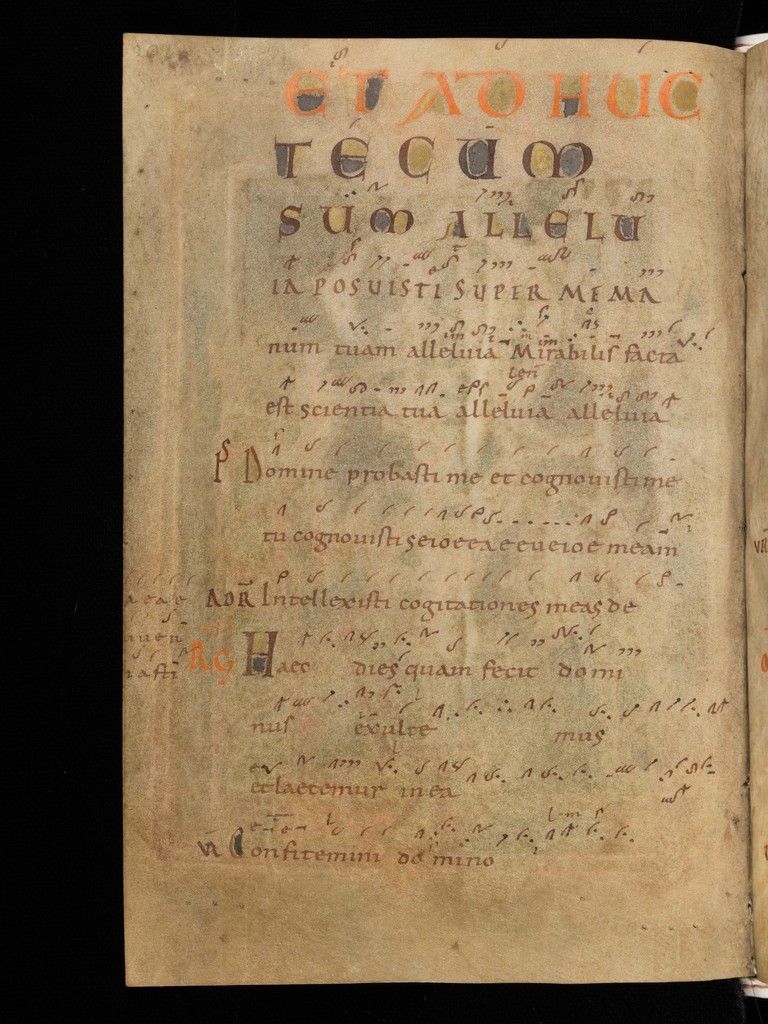 ET ADHUC
TECUM
SUM ALLELU
IA POSUISTI SUPER ME MA
num tuam alleluia Mirabilis facta
est scientia tua alleluia alleluia
Ps Domine probasti me et cognouisti me
tu cognouisti seioeeaeeueioe meam
ADR̄ Intellexisti cogitationes meas de
R̄G Haec dies quam fecit domi
nus exulte mus
et laetemur in ea
V̄R Confitemini domino